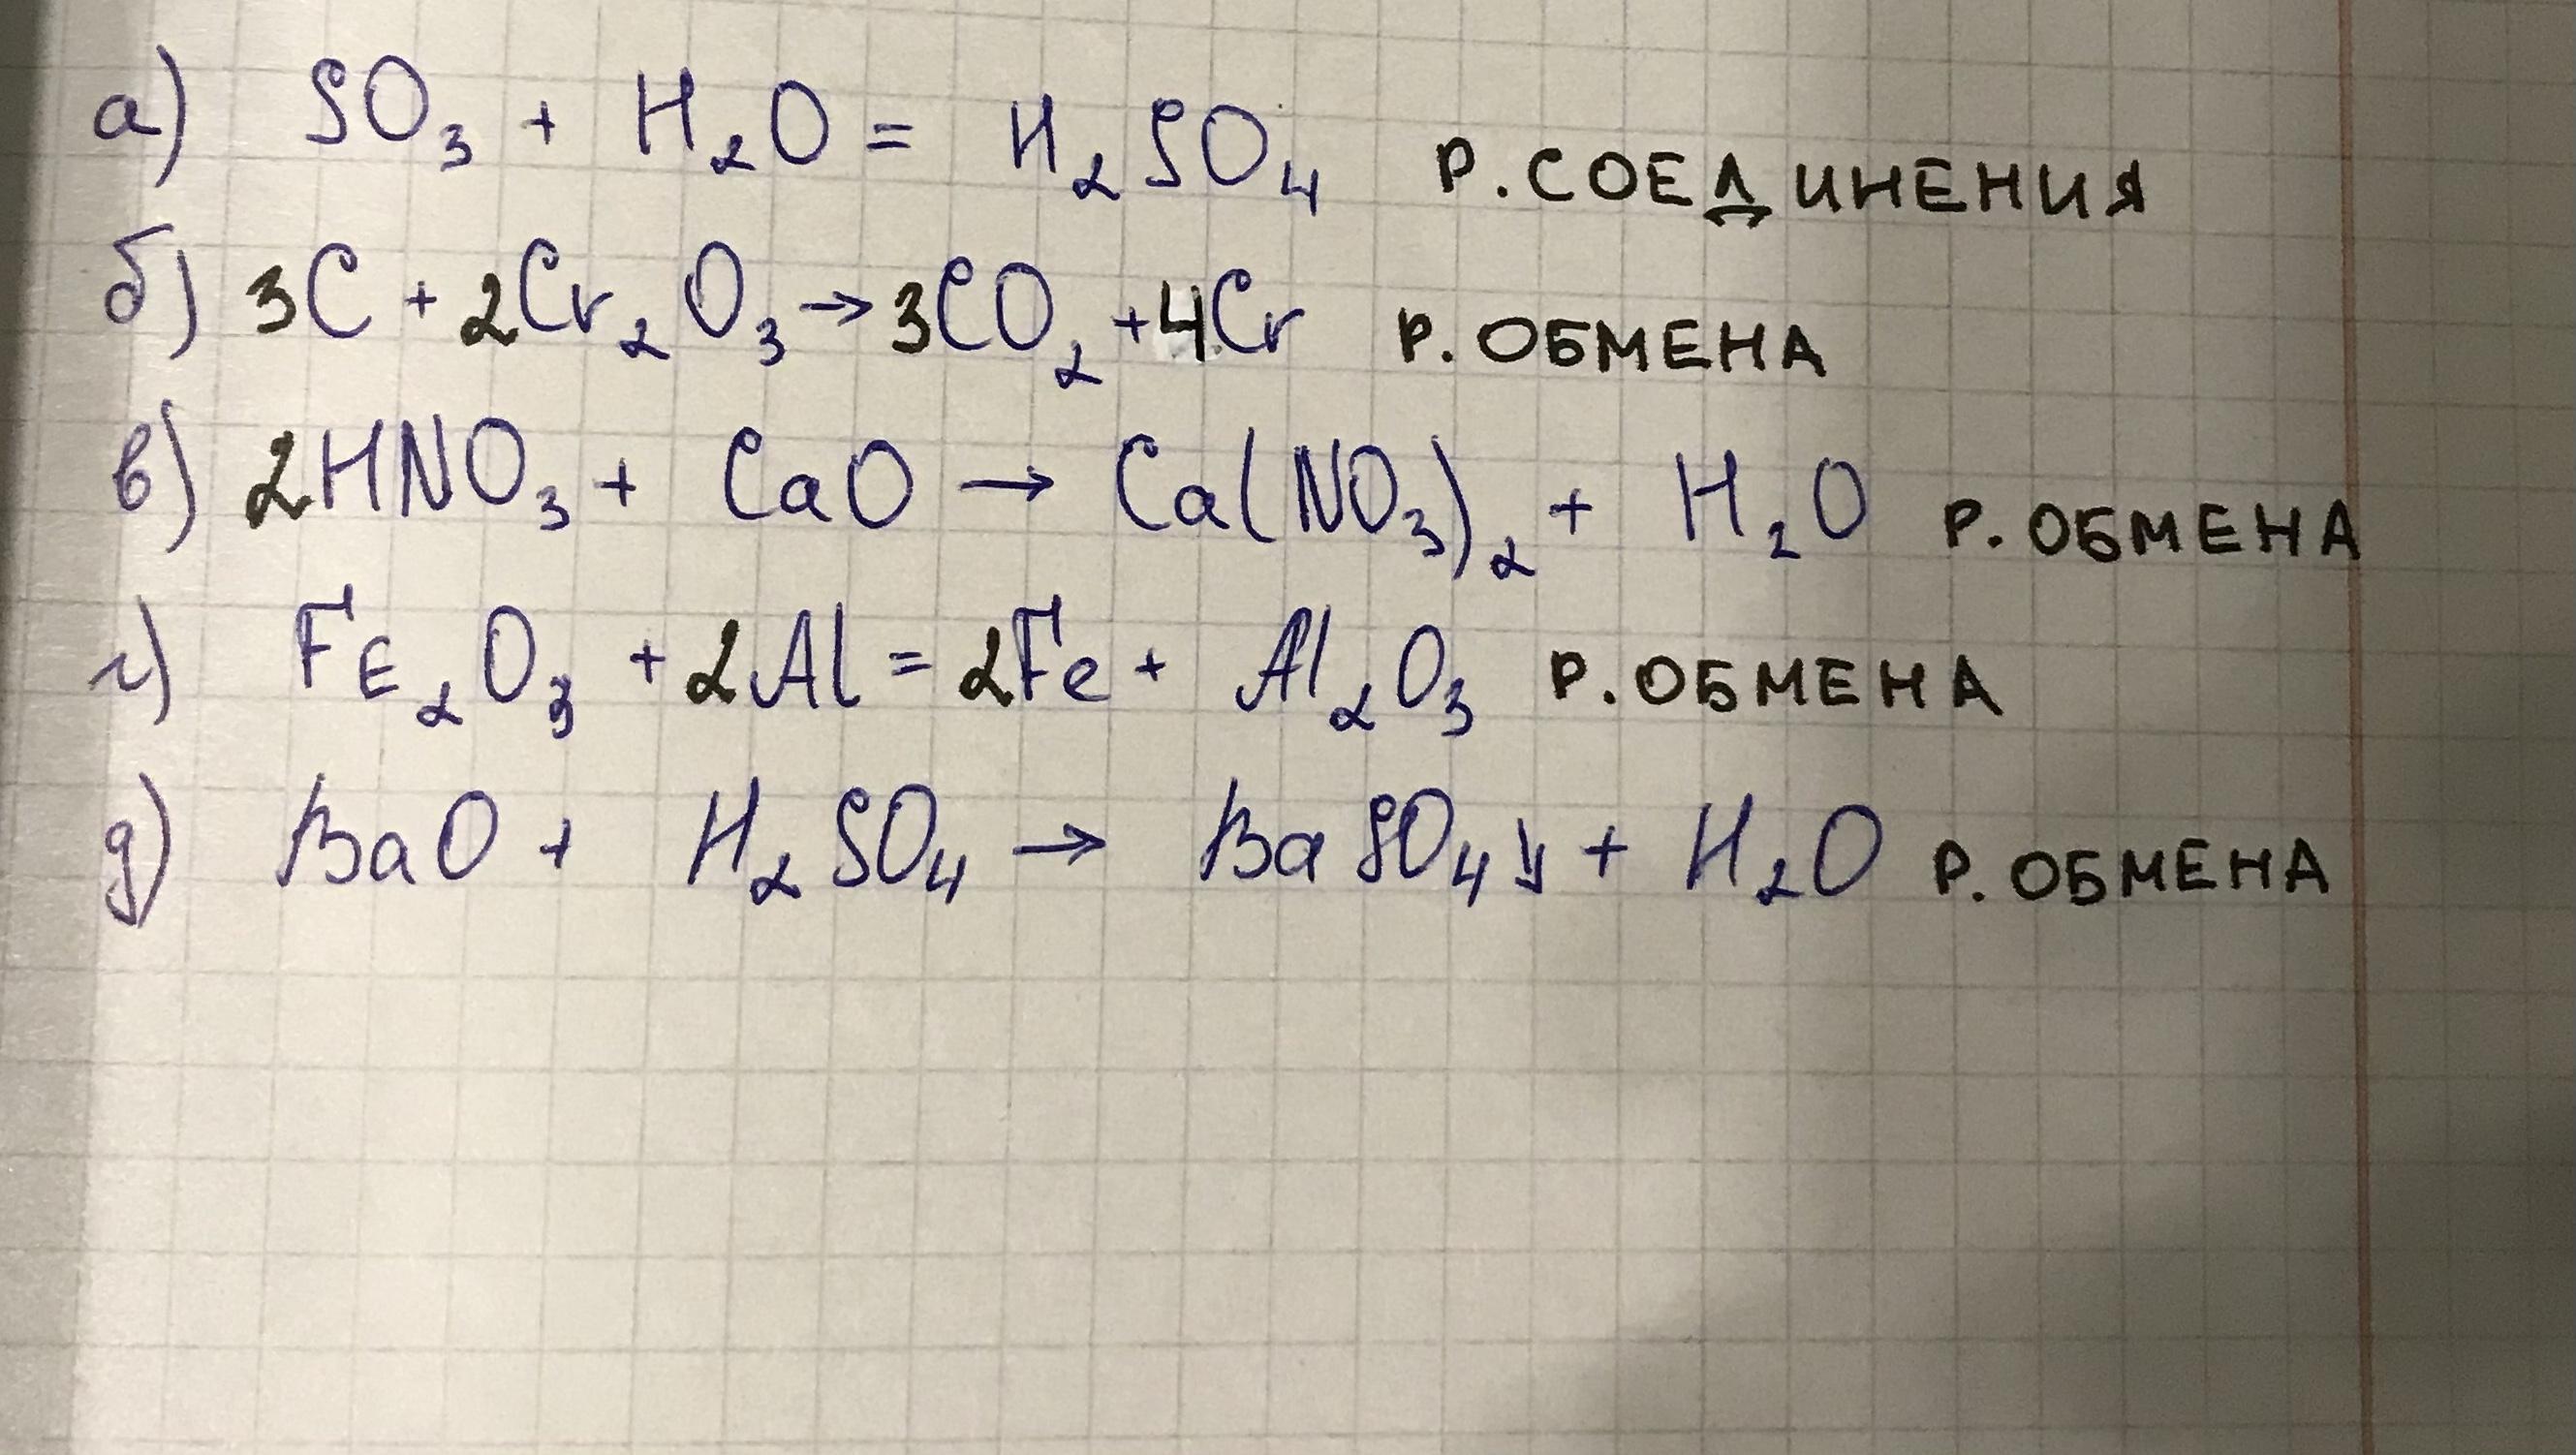 а) SO₃ + H₂O = H₂SO₄ Р. СОЕДИНЕНИЯ
б) 3C + 2Cr₂O₃ → 3CO₂ + 4Cr Р. ОБМЕНА
в) 2HNO₃ + CaO → Ca(NO₃)₂ + H₂O Р. ОБМЕНА
г) FE₂O₃ + 2Al = 2Fe + Al₂O₃ Р. ОБМЕНА
д) BaO + H₂SO₄ → BaSO₄↓ + H₂O Р. ОБМЕНА